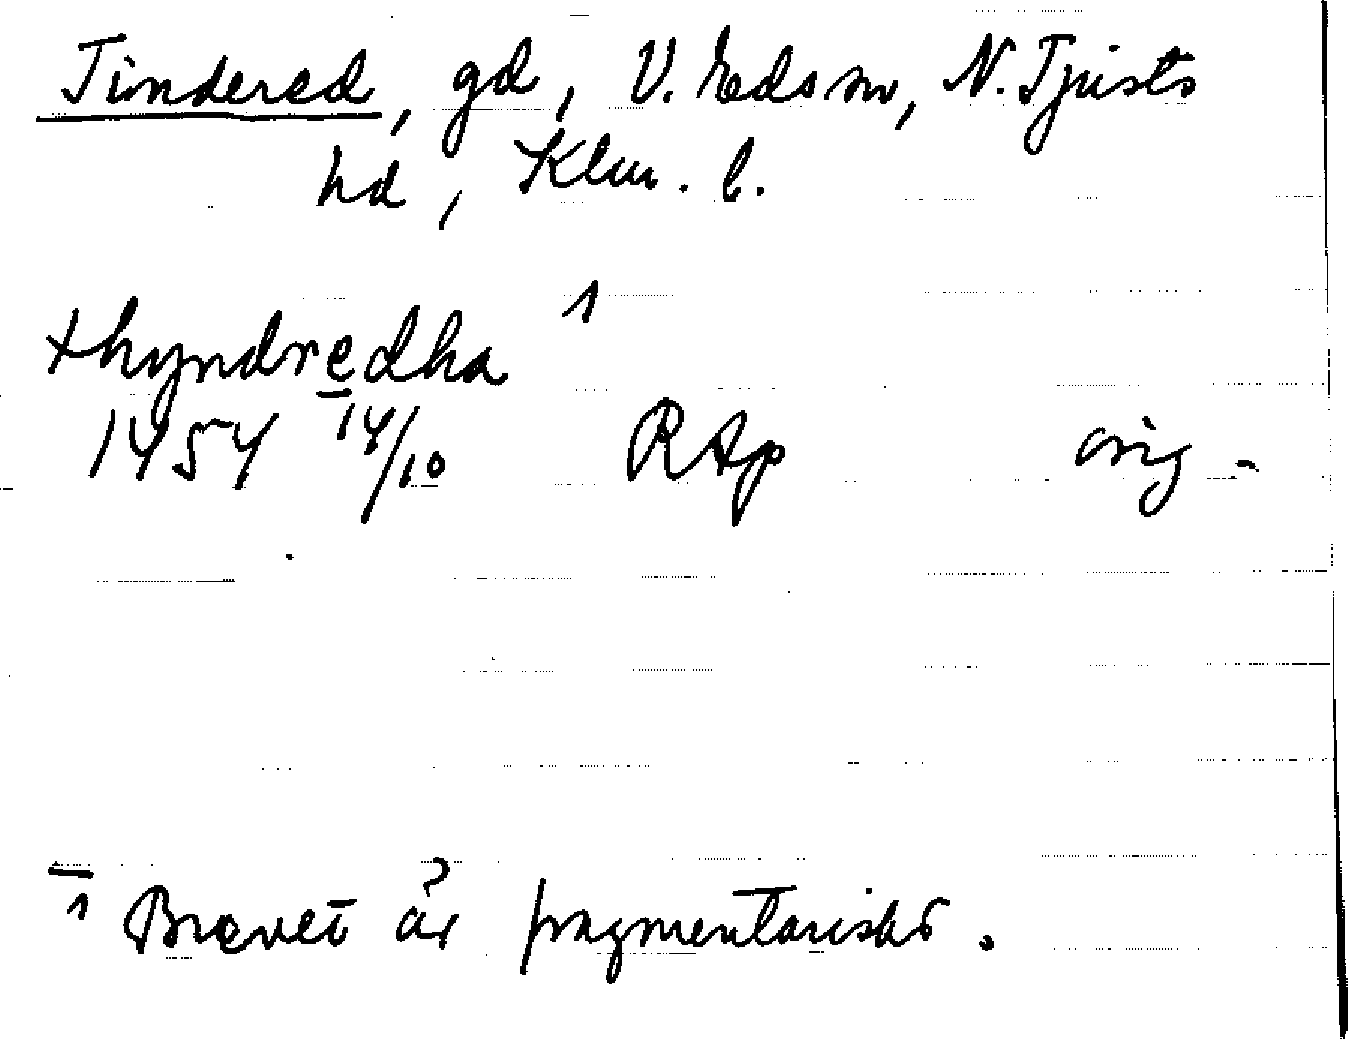 Tindered, gd, V. Eds sn, N. Tjusts
hd, Klm. l.
thyndredha 1
1454 14/10 RAp orig.
1 Brevet är fragmentariskt.